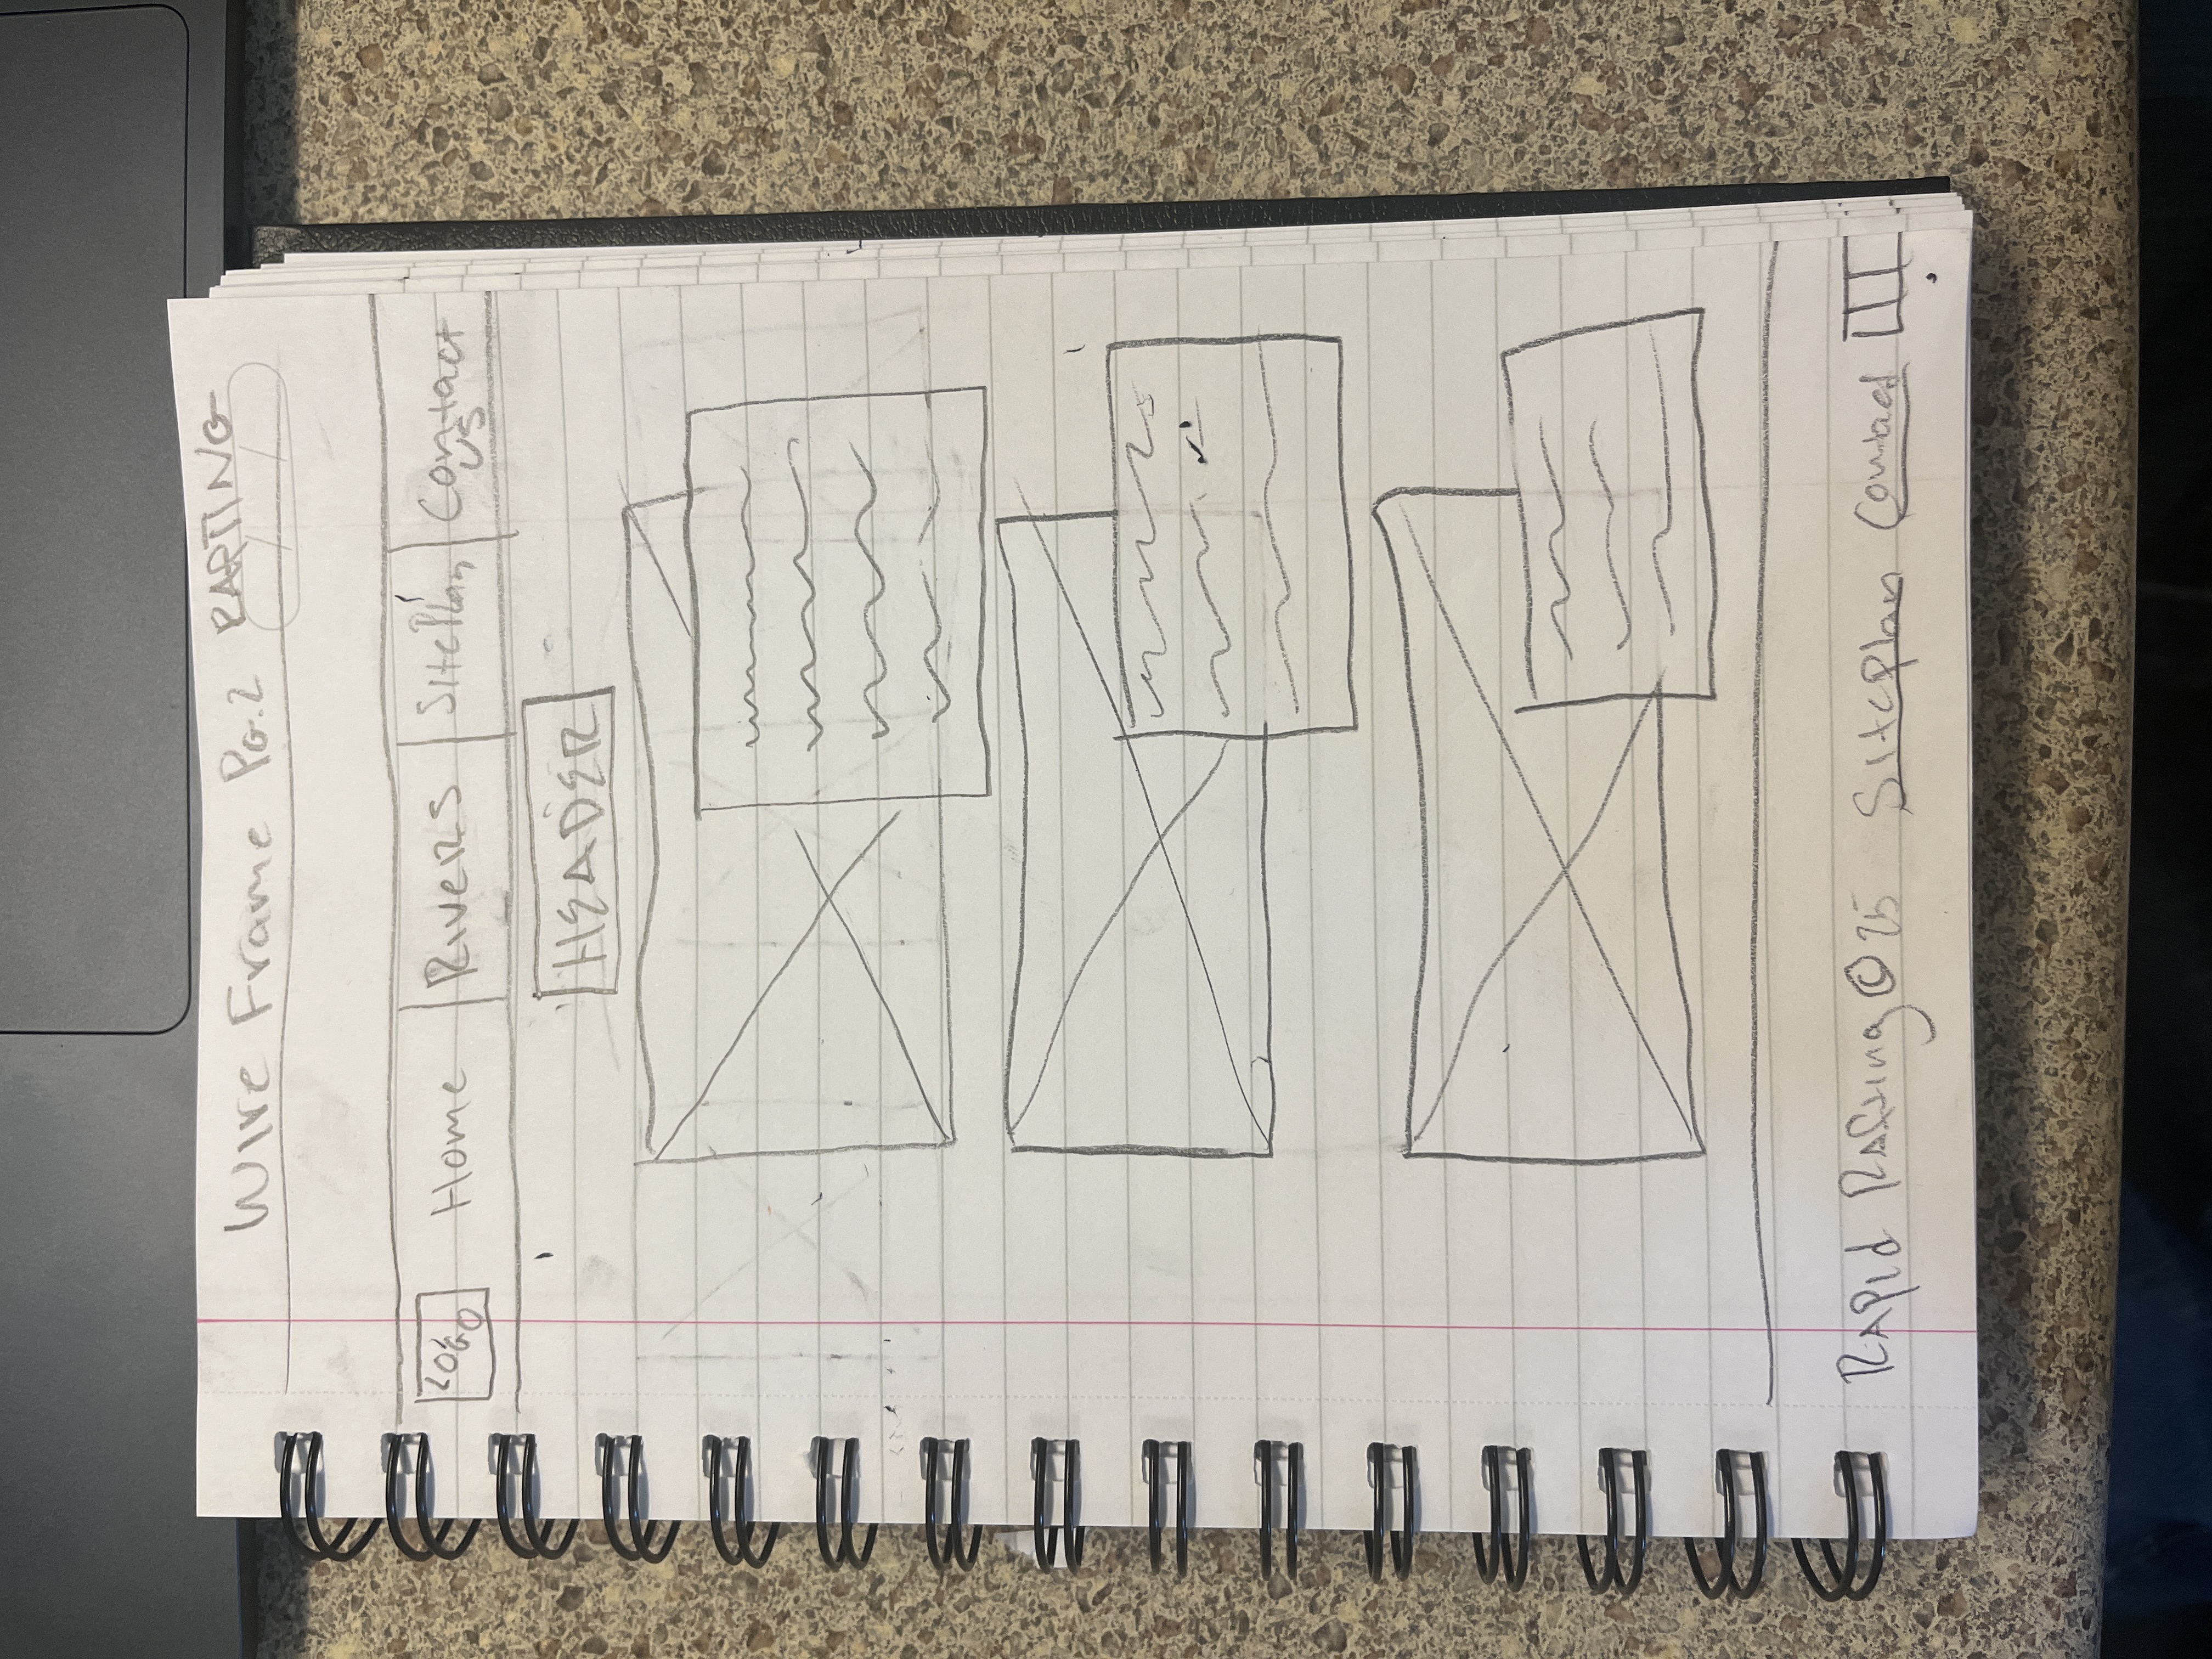 Wire Frame Pg. 2 RAFTING
LOGO Home Rivers SitePlan Contact us
HEADER
Rapid Rafting © 25 Siteplan Contact